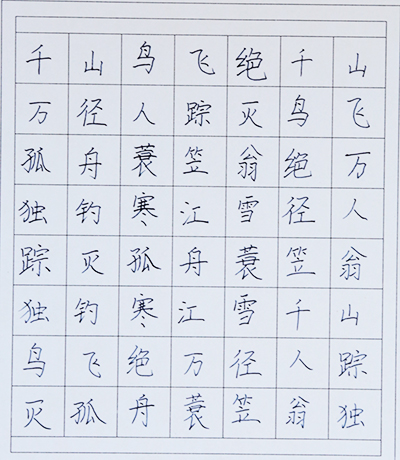 千山鸟飞绝千山
万径人踪灭鸟飞
孤舟蓑笠翁绝万
独钓寒江雪径人
踪灭孤舟蓑笠翁
独钓寒江雪千山
鸟飞绝万径人踪
灭孤舟蓑笠翁独